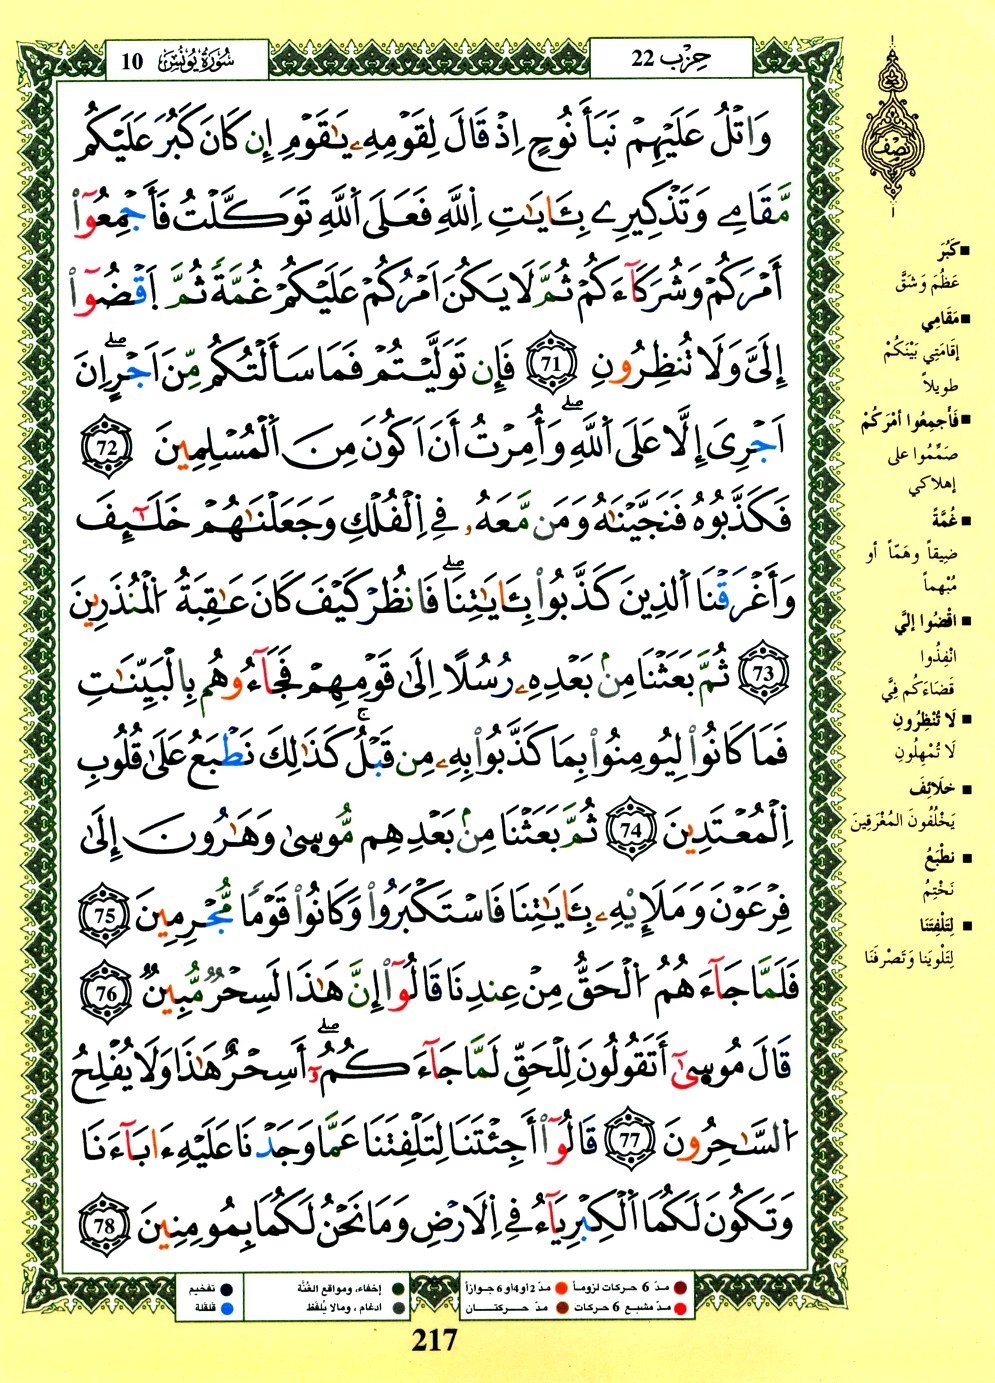 حِزْب 22
سُورَةُ يُونُسَ 10
نِصْف
وَاتْلُ عَلَيْهِمْ نَبَأَ نُوحٍ اِذْ قَالَ لِقَوْمِهِۦ يَٰقَوْمِ إِن كَانَ كَبُرَ عَلَيْكُم
مَّقَامِے وَتَذْكِيرِے بِـَٔايَٰتِ اِ۬للَّهِ فَعَلَى اَ۬للَّهِ تَوَكَّلْتُ فَأَجْمِعُوٓاْ
أَمْرَكُمْ وَشُرَكَآءَكُمْ ثُمَّ لَا يَكُنَ اَمْرُكُمْ عَلَيْكُمْ غُمَّةٗ ثُمَّ اَ۪قْضُوٓاْ
إِلَيَّ وَلَا تُنظِرُونِ 71 فَإِن تَوَلَّيْتُمْ فَمَا سَأَلْتُكُم مِّنَ اَجْرٍۖ اِنَ
اَجْرِيَ إِلَّا عَلَى اَ۬للَّهِۖ وَأُمِرْتُ أَنَ اَكُونَ مِنَ اَ۬لْمُسْلِمِينَ 72
فَكَذَّبُوهُ فَنَجَّيْنَٰهُ وَمَن مَّعَهُۥ فِے اِ۬لْفُلْكِ وَجَعَلْنَٰهُمْ خَلَٰٓئِفَ
وَأَغْرَقْنَا اَ۬لذِينَ كَذَّبُواْ بِـَٔايَٰتِنَاۖ فَانظُرْ كَيْفَ كَانَ عَٰقِبَةُ اُ۬لْمُنذَرِينَ
73 ثُمَّ بَعَثْنَا مِنۢ بَعْدِهِۦ رُسُلًا اِلَىٰ قَوْمِهِمْ فَجَآءُوهُم بِالْبَيِّنَٰتِ
فَمَا كَانُواْ لِيُومِنُواْ بِمَا كَذَّبُواْ بِهِۦ مِن قَبْلُۚ كَذَٰلِكَ نَطْبَعُ عَلَىٰ قُلُوبِ
اِ۬لْمُعْتَدِينَ 74 ثُمَّ بَعَثْنَا مِنۢ بَعْدِهِم مُّوسَىٰ وَهَٰرُونَ إِلَىٰ
فِرْعَوْنَ وَمَلَإِيْهِۦ بِـَٔايَٰتِنَا فَاسْتَكْبَرُواْ وَكَانُواْ قَوْمٗا مُّجْرِمِينَ 75
فَلَمَّا جَآءَهُمُ اُ۬لْحَقُّ مِنْ عِندِنَا قَالُوٓاْ إِنَّ هَٰذَا لَسِحْرٞ مُّبِينٞ 76
قَالَ مُوسَىٰٓ أَتَقُولُونَ لِلْحَقِّ لَمَّا جَآءَكُمُۥٓۖ أَسِحْرٌ هَٰذَا وَلَا يُفْلِحُ
اُ۬لسَّٰحِرُونَ 77 قَالُوٓاْ أَجِئْتَنَا لِتَلْفِتَنَا عَمَّا وَجَدْنَا عَلَيْهِ ءَابَآءَنَا
وَتَكُونَ لَكُمَا اَ۬لْكِبْرِيَآءُ فِے اِ۬لَارْضِ وَمَا نَحْنُ لَكُمَا بِمُومِنِينَ 78
■ كَبُرَ
عَظُمَ وَشَقَّ
■ مَقَامِي
إقَامَتِي بَيْنَكُمْ
طويلاً
■ فَأَجمِعُوا أمْرَكُمْ
صَمِّمُوا على
إهلاكي
■ غُمَّةً
ضِيقاً وهَمّاً أو
مُبْهماً
■ اقْضُوا إليَّ
انْفِذُوا
قَضَاءَكُم فِيَّ
■ لَا تُنْظِرُونِ
لَا تُمْهِلُونِ
■ خلَائِفَ
يَخْلُفُونَ المُغْرَقِينَ
■ نطْبَعُ
نَخْتِمُ
■ لِتَلْفِتَنَا
لِتَلْوِيَنا وَتَصْرِفَنَا
● مـدّ 6 حركات لزوماً ● مدّ 2 أو 4 أو 6 جوازاً
● مدّ مشبع 6 حركات ● مدّ حـركتـان
● إخفاء، ومواقع الغُنَّة
● ادغام، ومالا يُلفَظ
● تفخيم
● قلقلة
217